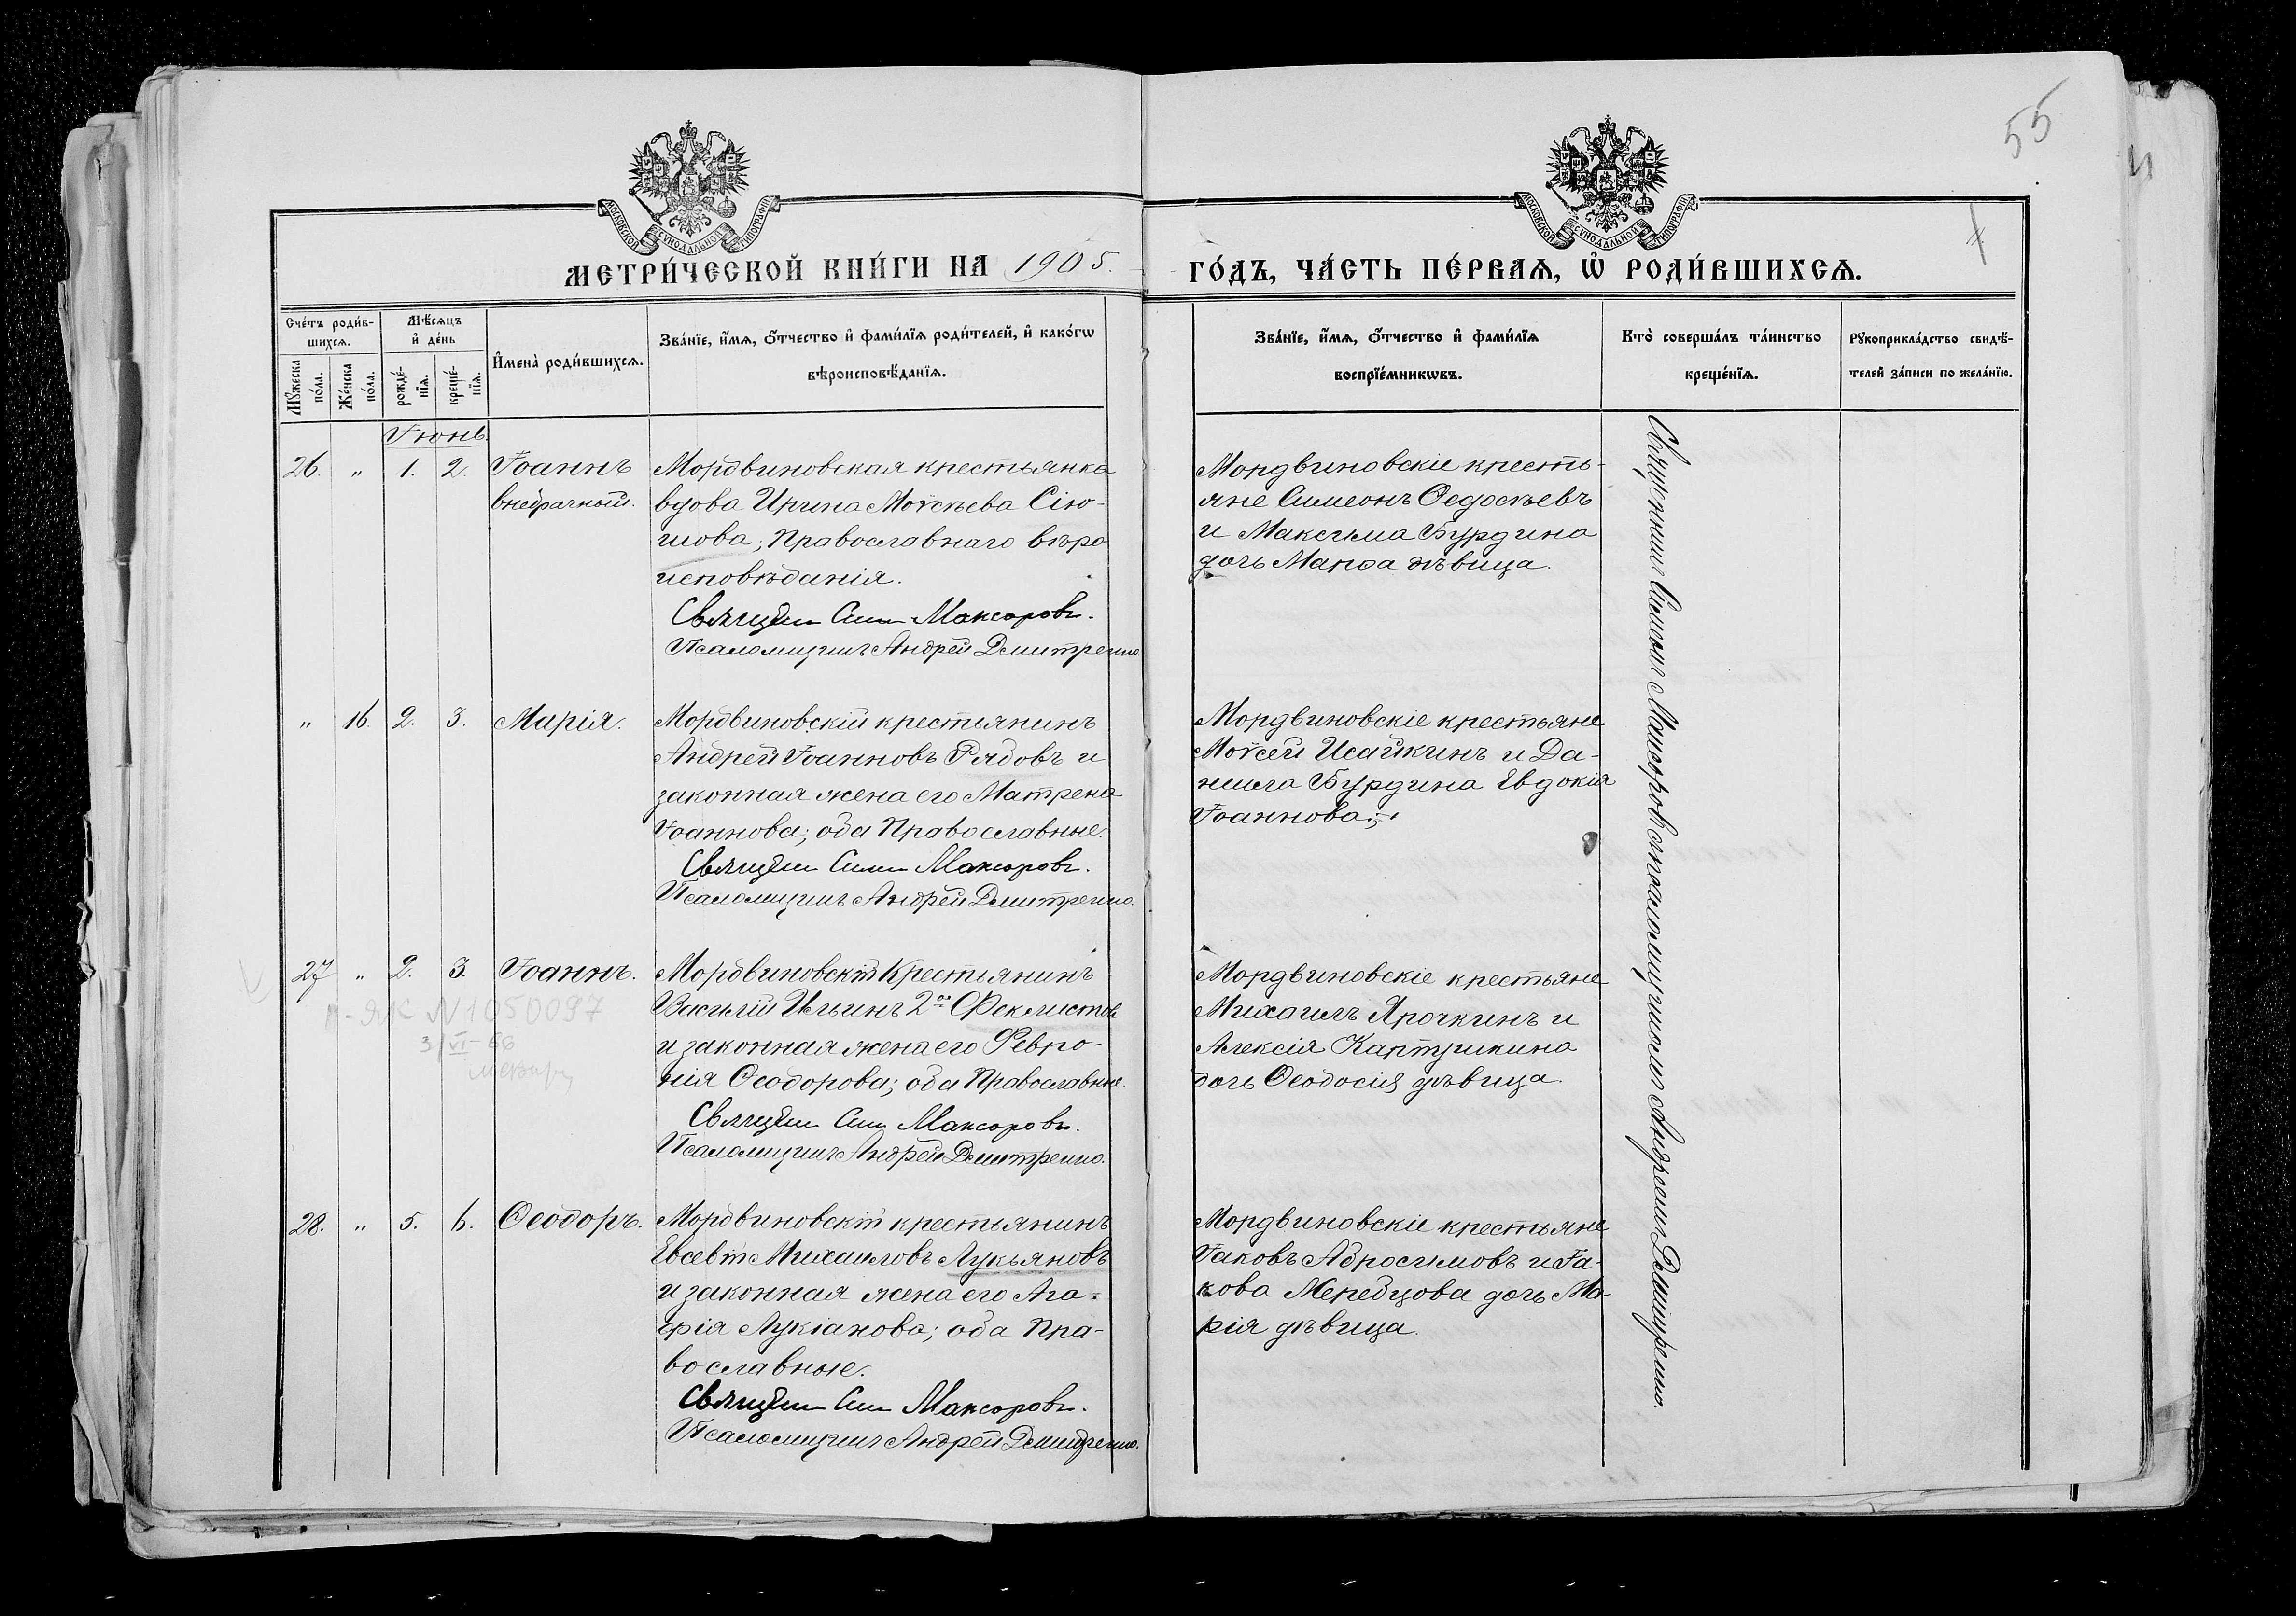 55
МОСКОВСКОЙ СУНОДАЛЬНОЙ ТИПОГРАФІИ
МОСКОВСКОЙ СУНОДАЛЬНОЙ ТИПОГРАФІИ
МЕТРИ́ЧЕСКОЙ КНИ́ГИ НА 1905.
ГО́ДЪ, ЧА́СТЬ ПЕ́РВАѦ, Ѡ҆ РОДИ́ВШИХСѦ.
Сче́тъ роди́в-
шихсѧ.
Мꙋ́жеска по́ла.
Же́нска по́ла.
Мѣ́сѧцъ
и҆ де́нь
рожде́-
нїѧ.
креще́-
нїѧ.
И҆мена̀ роди́вшихсѧ.
Зва́нїе, и҆́мѧ, ѻ҆́тчество и҆ фами́лїѧ роди́телей, и҆ како́гѡ
вѣроисповѣ́данїѧ.
Зва́нїе, и҆́мѧ, ѻ҆́тчество и҆ фами́лїѧ
воспрїе́мникѡвъ.
Кто̀ соверша́лъ та́инство
креще́нїѧ.
Рꙋкоприкла́дство свидѣ́-
телей за́писи по жела́нїю.
Іюнь.
26. " 1. 2. Іоаннъ
внебрачный.
Мордвиновская крестьянка
вдова Ирина Моѵсѣева Сію-
шова; Православнаго вѣро
исповѣданія.
Священ Сим Максоровъ.
Псаломщикъ Андрей Дмитренко
Мордвиновскіе кресть-
яне Симеонъ Ѳедосѣевъ
и Максима Бурдина
дочь Марѳа дѣвица.
" 16. 2. 3. Марія.
Мордвиновскій крестьянинъ
Андрей Іоанновъ Рядовъ и
законная жена его Матрена
Іоаннова; оба Православные.
Священ Сим Максоровъ.
Псаломщикъ Андрей Дмитренко.
Мордвиновскіе крестьяне
Моѵсей Исайкинъ и Да-
ниила Бурдина Евдокія
Іоаннова;
27 " 2. 3. Іоаннъ.
ЯК N 1050097
3/VI-66
Мордвиновскій Крестьянинъ
Василій Ильинъ 2ой Феклистовъ
и законная жена его Февро-
нія Ѳеодорова; оба Православные.
Священ Сим Максоровъ.
Псаломщикъ Андрей Дмитренко.
Мордвиновскіе крестьяне
Михаилъ Ярочкинъ и
Алексія Картушкина
дочь Ѳеодосія дѣвица.
28. " 5. 6. Ѳеодоръ.
Мордвиновскій крестьянинъ
Евсевій Михаиловъ Лукьяновъ
и законная жена его Ага-
фія Лукіанова; оба Пра-
вославные.
Священ Сим Максоровъ.
Псаломщикъ Андрей Дмитренко.
Мордвиновскіе крестьяне
Іаковъ Абросимовъ и Іа-
кова Мередцова дочь Ма-
рія дѣвица.
Священникъ Симеонъ Максоровъ съ псаломщикомъ Андреемъ Дмитренко.